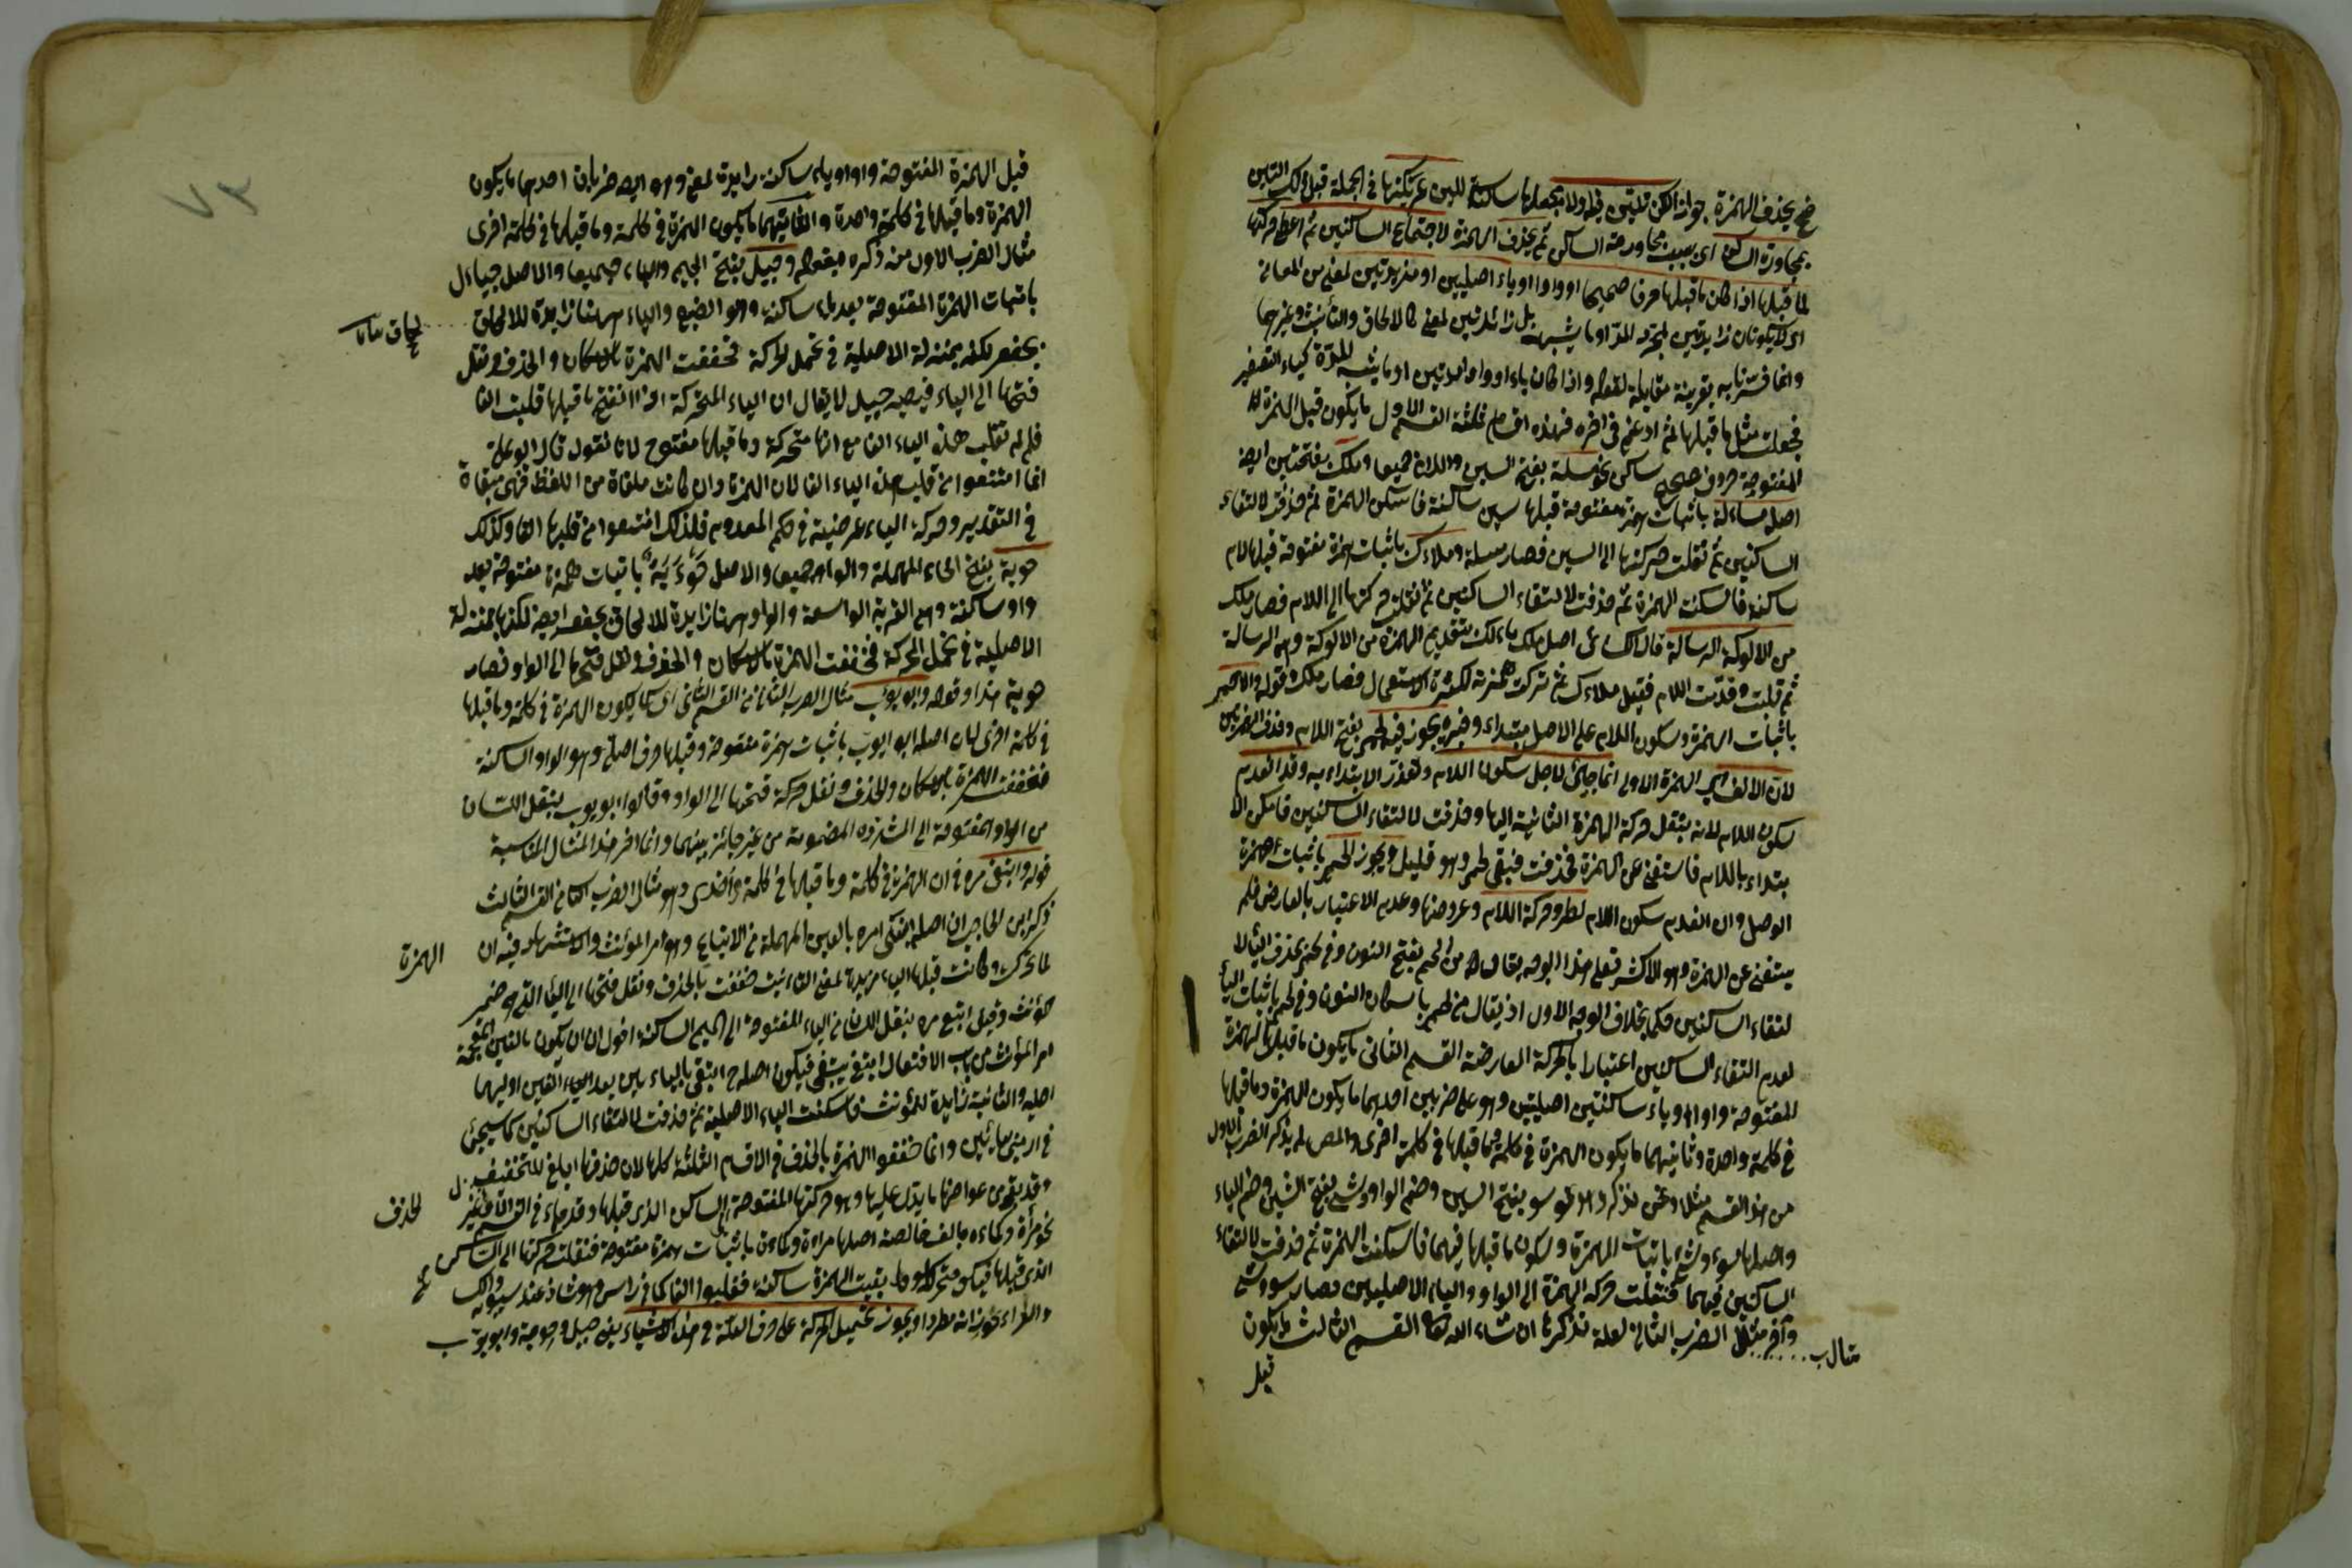 بمجاورة الساكن اى بسبب مجاورته الساكن ثم يحذف الهمزة لاجتماع الساكنين ثم اعطى حركتها
لما قبلها اذا كان ما قبلها حرفا صحيحا او واوا او ياء اصليتين او مزيدتين لمعنى من المعانى
اى لا يكونان زايدتين لمجرد المد او ما يشبهه بل زائدتين لمعنى كالالحاق والتأنيث وغيرهما
وانما فسرنا به بقرينة مقابلة لقوله واذا كان ياء او واوا مدتين او ما يشبه المدة كياء التصغير
فجعلت مثل ما قبلها ثم ادغم فى اخره فهذه اقسام ثلثة القسم الاول ما يكون قبل الهمزة
المفتوحة حرف صحيح ساكن نحو مسلة بفتح السين واللام جميعا وملك بفتحتين ايضا
اصله مسألة باثبات همزة مفتوحة قبلها سين ساكنة فاسكن الهمزة ثم حذفت لالتقاء
الساكنين ثم نقلت حركتها الى السين فصار مسلة وملاءك باثبات همزة مفتوحة قبلها لام
ساكنة فاسكنت الهمزة ثم حذفت لالتقاء الساكنين ثم نقلت حركتها الى اللام فصار ملك
من الالوكة الرسالة قال الكسائى اصل ملك مالك بتقديم الهمزة من الالوكة وهى الرسالة
ثم قلبت وقدمت اللام فقيل ملاءك ثم تركت همزته لكثرة الاستعمال فصار ملك وقوله والاحمر
باثبات الهمزة وسكون اللام على الاصل مبتداء وخبره يجوز فيه لحمر بفتح اللام وحذف الهمزتين
لان الالف اى الهمزة الاولى انما جئ لاجل سكون اللام وتعذر الابتداء به وقد انعدم
سكون اللام لانه ينقل حركة الهمزة الثانية اليها وحذفت لالتقاء الساكنين فامكن الا
بتداء باللام فاستغنى عن الهمزة فحذفت فبقى لحمر وهو قليل ويجوز الحمر باثبات همزة
الوصل وان انعدم سكون اللام لطرو حركة اللام وعروضها وعدم الاعتبار بالعارض فلم
يستغنى عن الهمزة وهو الاكثر فعلى هذا الوجه يقال من الحمر بفتح النون وفى لحمر بحذف الياء لا
لتقاء الساكنين حكما بخلاف الوجه الاول اذ يقال من لحمر باسكان النون وفى لحمر باثبات الياء
لعدم التقاء الساكنين اعتبارا بالحركة العارضة القسم الثانى ما يكون ما قبل الهمزة
المفتوحة واوا او ياء ساكنتين اصليتين وهو على ضربين احدهما ما يكون الهمزة وما قبلها
فى كلمة واحدة وثانيهما ما يكون الهمزة فى كلمة وما قبلها فى كلمة اخرى والمص لم يذكر الضرب الاول
من هذا القسم مثلا ونحن نذكره وهو سو بفتح السين وضم الواو وشى بفتح الشين وضم الياء
واصلها سوء وشىء باثبات الهمزة وسكون ما قبلها فيهما فاسكنت الهمزة ثم حذفت لالتقاء
الساكنين فيهما فنقلت حركة الهمزة الى الواو والياء الاصليتين فصار سو وشى
وآخر مثال الضرب الثانى لعلة نذكرها ان شاء الله تعالى القسم الثالث ما يكون
مثال
قبل
٧٣
قبل الهمزة المفتوحة واوا او ياء ساكنة زايدة لمعنى وهو ايضا ضربان احدهما ما يكون
الهمزة وما قبلها فى كلمة واحدة والثانيهما ما يكون الهمزة فى كلمة وما قبلها فى كلمة اخرى
مثال الضرب الاول منه ذكره بقوله وجيل بفتح الجيم والياء جميعا والاصل جياءل
باثبات الهمزة المفتوحة بعد ياء ساكنة وهو الضبع والياء ههنا زايدة للالحاق
بجعفر لكنه بمنزلة الاصلية فى تحمل الحركة فخففت الهمزة بالاسكان والحذف ونقل
فتحها الى الياء فيصير جيل لا يقال ان الياء المتحركة اذا انفتح ما قبلها قلبت الفا
فلم لم تقلب هذه الياء الفا مع انها متحركة وما قبلها مفتوح لانا نقول قال ابو على
انما امتنعوا من قلب هذه الياء الفا لان الهمزة وان كانت ملقاة من اللفظ فهى مبقاة
فى التقدير وحركة الياء عرضية فى حكم المعدوم فلذلك امتنعوا من قلبها الفا وكذلك
حوبة بفتح الحاء المهملة والواو جميعا والاصل حوءبة باثبات همزة مفتوحة بعد
واو ساكنة وهى القربة الواسعة والواو ههنا زايدة للالحاق بجعفر ايضا لكنها بمنزلة
الاصلية فى تحمل الحركة فخففت الهمزة بالاسكان والحذف ونقل فتحها الى الواو فصار
حوبة هذا وقوله وابو يوب مثال الضرب الثانى من القسم الثانى اى ما يكون الهمزة فى كلمة وما قبلها
فى كلمة اخرى لان اصله ابو ايوب باثبات همزة مفتوحة وقبلها حرف اصلى وهو الواو الساكنة
فخففت الهمزة بالاسكان والحذف ونقل حركة فتحها الى الواو وقالوا ابو يوب ينقل اللسان
من الواو المفتوحة الى المشددة المضمومة من غير حائز بينهما وانما اخر هذا المثال لمناسبة
قوله وابتغى مره فى ان الهمزة فى كلمة وما قبلها فى كلمة واخرى وهو مثال الضرب الثانى من القسم الثالث
ذكر ابن الحاجب ان اصله ابتغى امره بالعين المهملة من الاتباع وهو امر المؤنث والاستشهاد فيه ان
الهمزة
لما تحرك وكانت قبلها الياء مزيدة لمعنى التأنيث خففت بالحذف ونقل فتحها الى الياء التى هى ضمير
المؤنث وقيل اتبع مره بنقل اللسان من الياء المفتوحة الى الميم الساكنة اقول ان ان يكون بالغين المعجمة
امر المؤنث من باب الافتعال ابتغى يبتغى فيكون اصله ابتغيى بالياءين بعد الغين اوليهما
اصلية والثانية زايدة للمؤنث فاسكنت الياء الاصلية ثم حذفت لالتقاء الساكنين كما سيجئ
فى ارمى بيائين وانما خففوا الهمزة بالحذف فى الاقسام الثلثة كلها لان حذفها ابلغ للتخفيف
وقد بقى من عوارضها ما يدل عليها وهو حركتها المفتوحة الى الساكن الذى قبلها وقد جاء فى القسم الاول
الحذف
نحو مرأة وكماءه بالف خالصة اصلها مراءة وكماءة باثبات همزة مفتوحة فنقلت حركتها الى الساكن
الذى قبلها فيكون متحركا وما بقيت الهمزة ساكنة فقلبوا الفا كما فى راس وهو شاذ عند سيبويه
والفراء يجوزانه مطردا ويجوز تحميل الحركة على حرف العلة فى هذه الاشياء يعنى جيل وحوبة وابو يوب